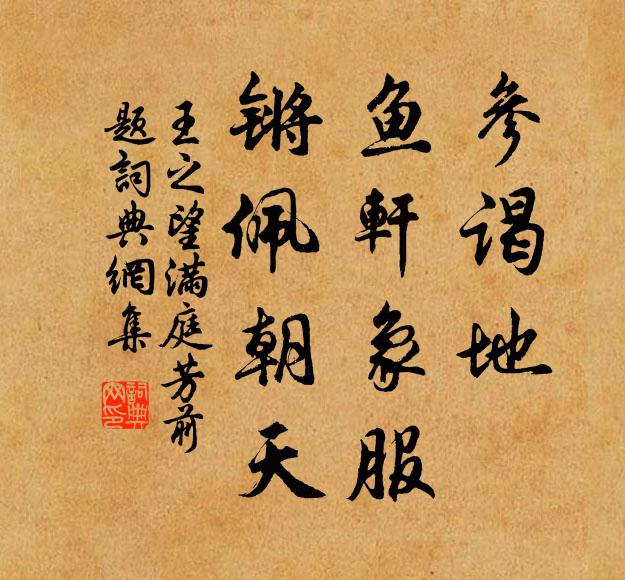 参谒地
鱼軒象服
锵佩朝天
王之望满庭芳前
题詞典網集
詞典网印